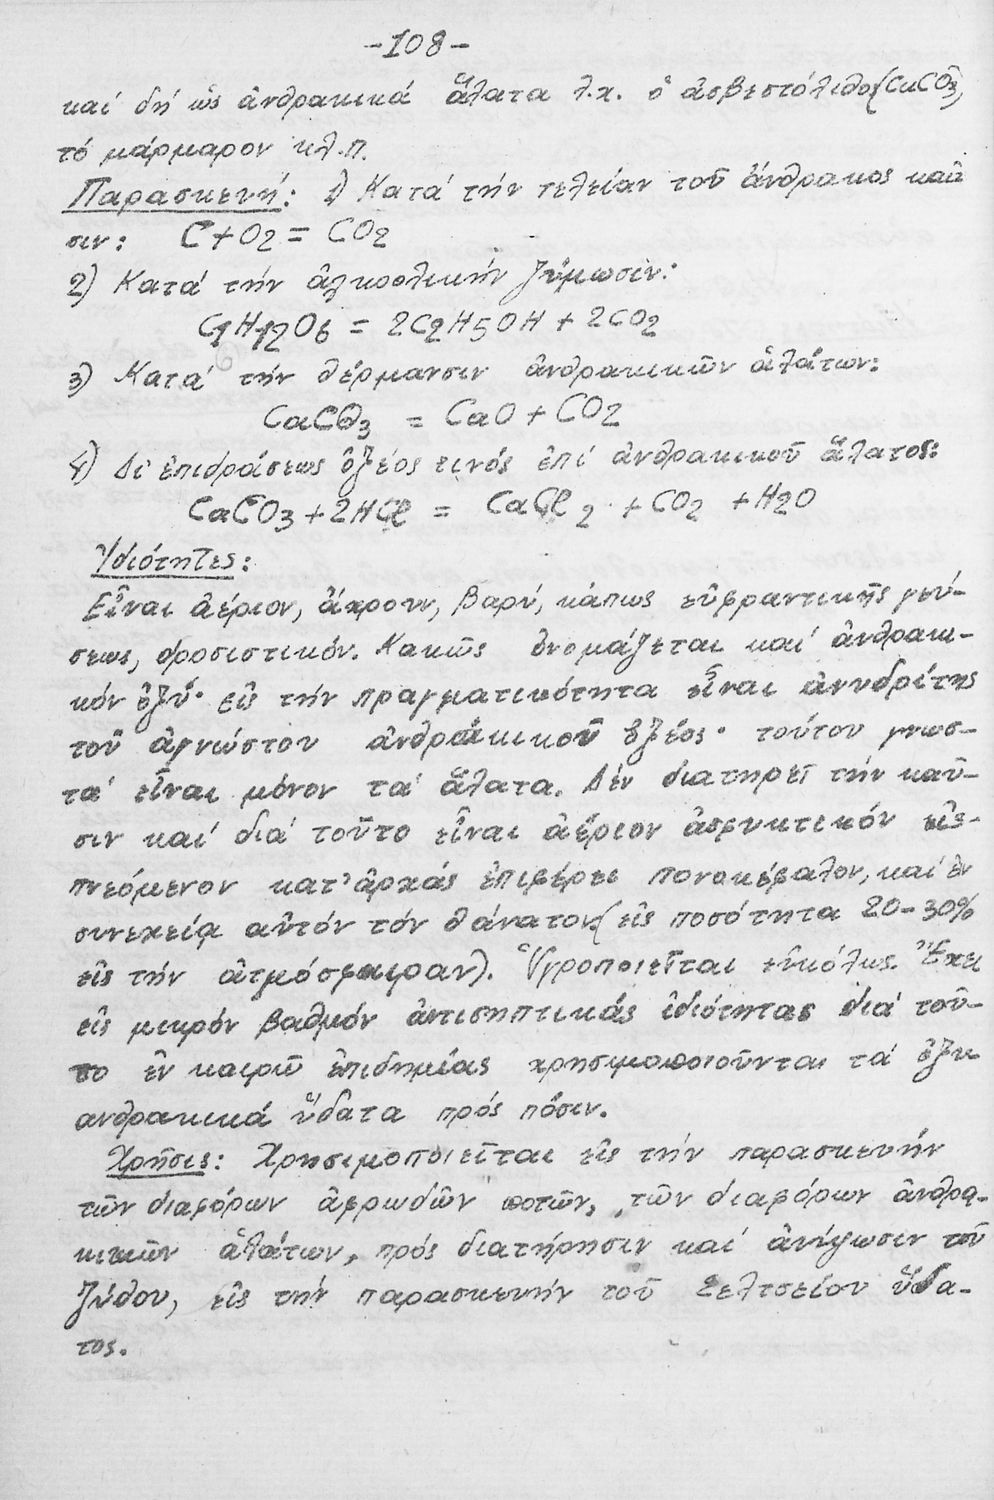 -108-
καί δή ὡς ἀνθρακικά ἅλατα λ.χ. ὁ ἀσβεστόλιθος(CaCO3),
τό μάρμαρον κλ.π.
Παρασκευή: 1) Κατά τήν τελείαν τοῦ ἄνθρακος καῦ
σιν: C+O2 = CO2
2) Κατά τήν ἀλκοολικήν ζύμωσιν:
C6H12O6 = 2C2H5OH + 2CO2
3) Κατά τήν θέρμανσιν ἀνθρακικῶν ἁλάτων:
CaCO3 = CaO + CO2
4) Δι' ἐπιδράσεως ὀξέος τινός ἐπί ἀνθρακικοῦ ἅλατος:
CaCO3 + 2HCl = CaCl2 + CO2 + H2O
Ἰδιότητες:
Εἶναι ἀέριον, ἄχρουν, βαρύ, κάπως εὐφραντικῆς γεύ-
σεως, δροσιστικόν. Κακῶς ὀνομάζεται καί ἀνθρακι-
κόν ὀξύ· εἰς τήν πραγματικότητα εἶναι ἀνυδρίτης
τοῦ ἀγνώστου ἀνθρακικοῦ ὀξέος· τούτου γνωσ-
τά εἶναι μόνον τά ἅλατα. Δέν διατηρεῖ τήν καῦ-
σιν καί διά τοῦτο εἶναι ἀέριον ἀσφυκτικόν εἰσ-
πνεόμενον κατ' ἀρχάς ἐπιφέρει πονοκέφαλον, καί ἐν
συνεχείᾳ αὐτόν τόν θάνατον (εἰς ποσότητα 20-30%
εἰς τήν ἀτμόσφαιραν). Ὑγροποιεῖται εὐκόλως. Ἔχει
εἰς μικρόν βαθμόν ἀντισηπτικάς ἰδιότητας διά τοῦ-
το ἐν καιρῷ ἐπιδημίας χρησιμοποιοῦνται τά ὀξυ
ανθρακικά ὕδατα πρός πόσιν.
Χρῆσις: Χρησιμοποιεῖται εἰς τήν παρασκευήν
τῶν διαφόρων ἀφρωδῶν ποτῶν, τῶν διαφόρων ἀνθρα-
κικῶν ἁλάτων, πρός διατήρησιν καί ἀνύψωσιν τοῦ
ζύθου, εἰς τήν παρασκευήν τοῦ Σελτσείου ὕδα-
τος.